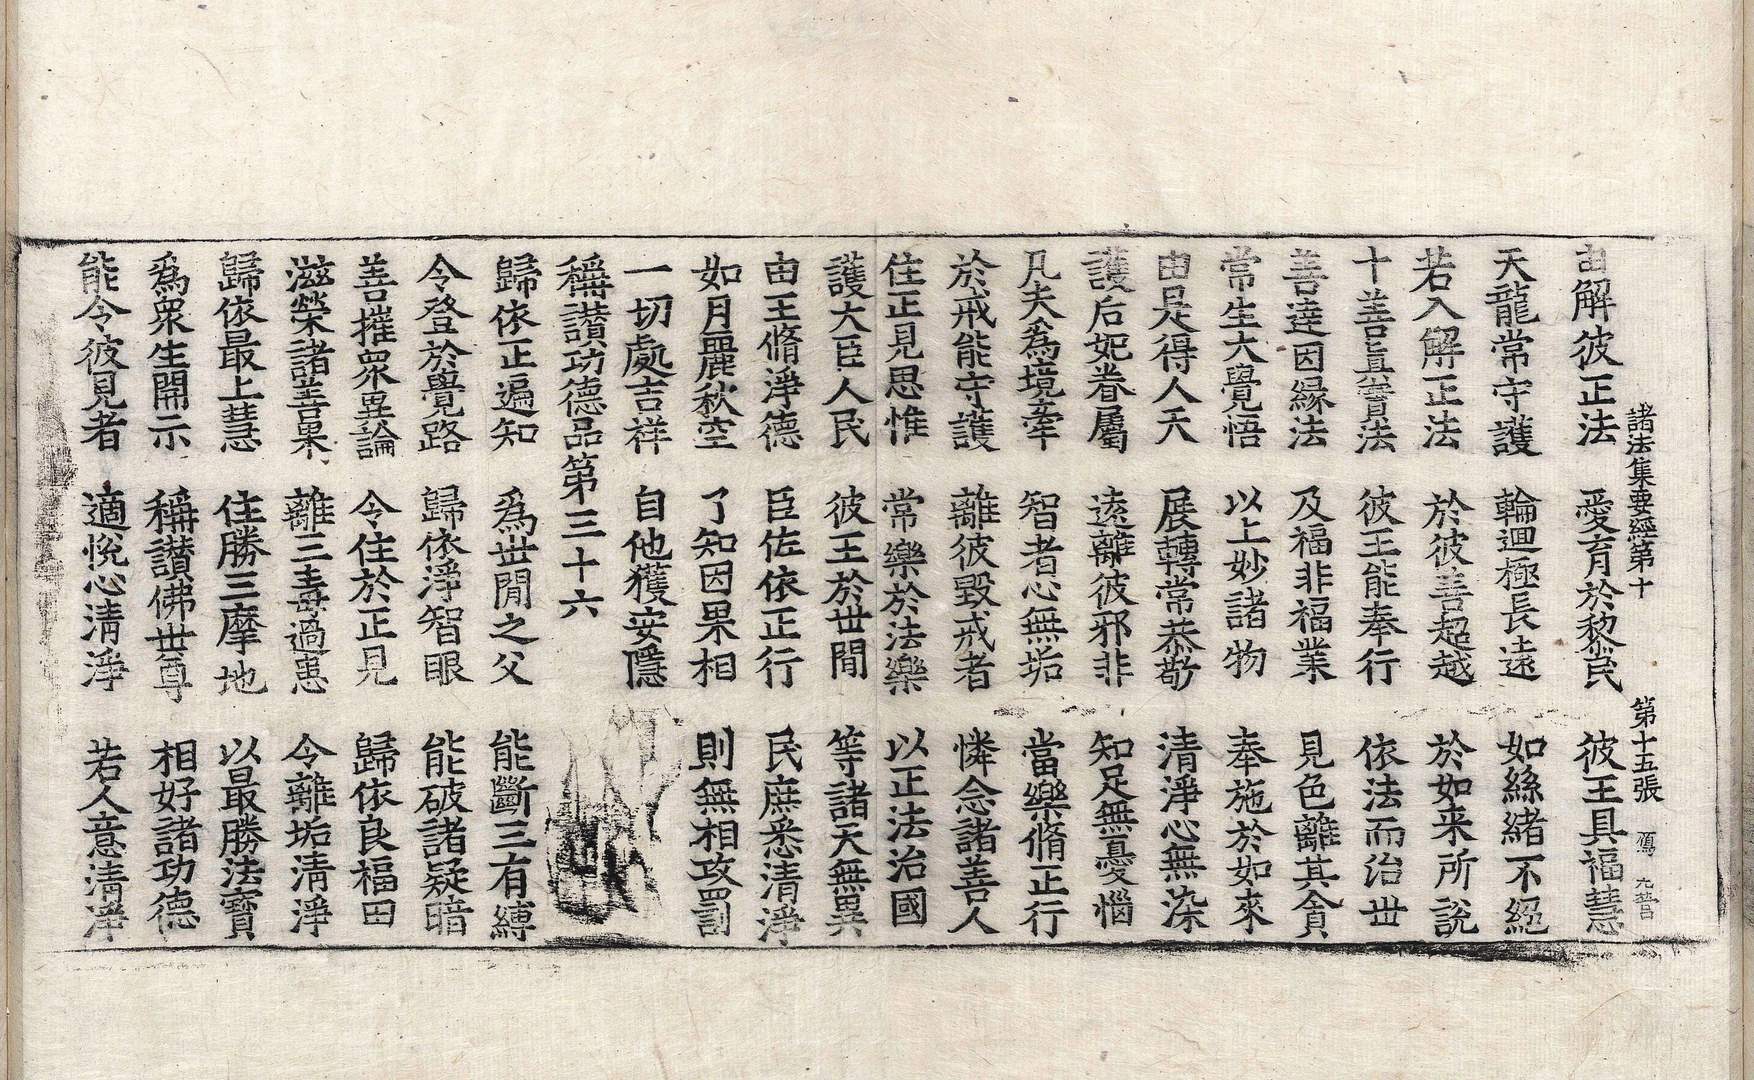 諸法集要經第十 第十五張
由解彼正法 愛育於黎民 彼王具福慧
天龍常守護 輪迴極長遠 如絲緒不絕
若入解正法 於彼善超越 於如来所說
十善真實法 彼王能奉行 依法而治世
善達因緣法 及福非福業 見色離其貪
常生大覺悟 以上妙諸物 奉施於如來
由是得人天 展轉常恭敬 清淨心無染
護后妃眷屬 遠離彼邪非 知足無憂惱
凡夫爲境牽 智者心無垢 當樂脩正行
於戒能守護 離彼毀戒者 憐念諸善人
住正見思惟 常樂於法樂 以正法治國
護大臣人民 彼王於世間 等諸天無異
由王脩淨德 臣佐依正行 民庶悉清淨
如月麗秋空 了知因果相 則無相攻罰
一切處吉祥 自他獲安隱
稱讃功德品第三十六
歸依正遍知 爲世間之父 能斷三有縛
令登於覺路 歸依淨智眼 能破諸疑暗
善摧衆異論 令住於正見 歸依良福田
滋榮諸善果 離三毒過患 令離垢清淨
歸依最上慧 住勝三摩地 以最勝法寶
爲衆生開示 稱讃佛世尊 相好諸功德
能令彼見者 適悅心清淨 若人意清淨